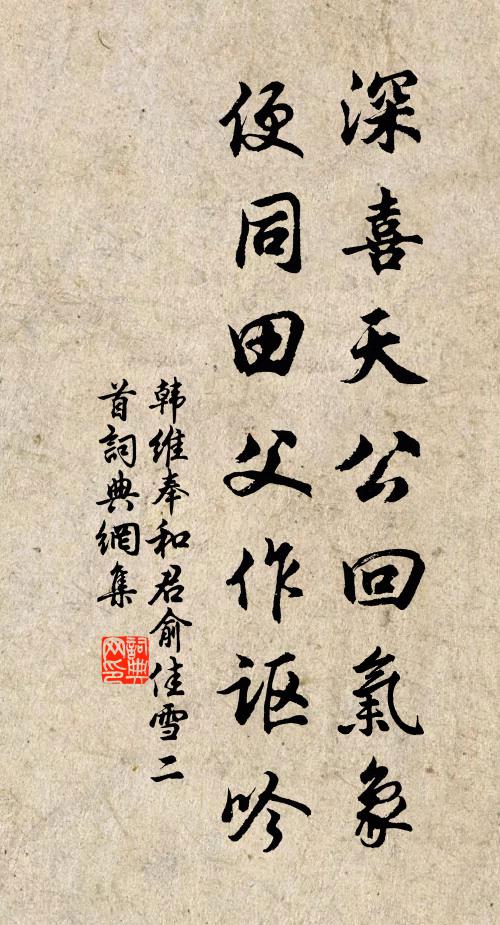 深喜天公回氣象
便同田父作讴吟
韩維奉和君俞佳雪二
首詞典網集
詞典
网印